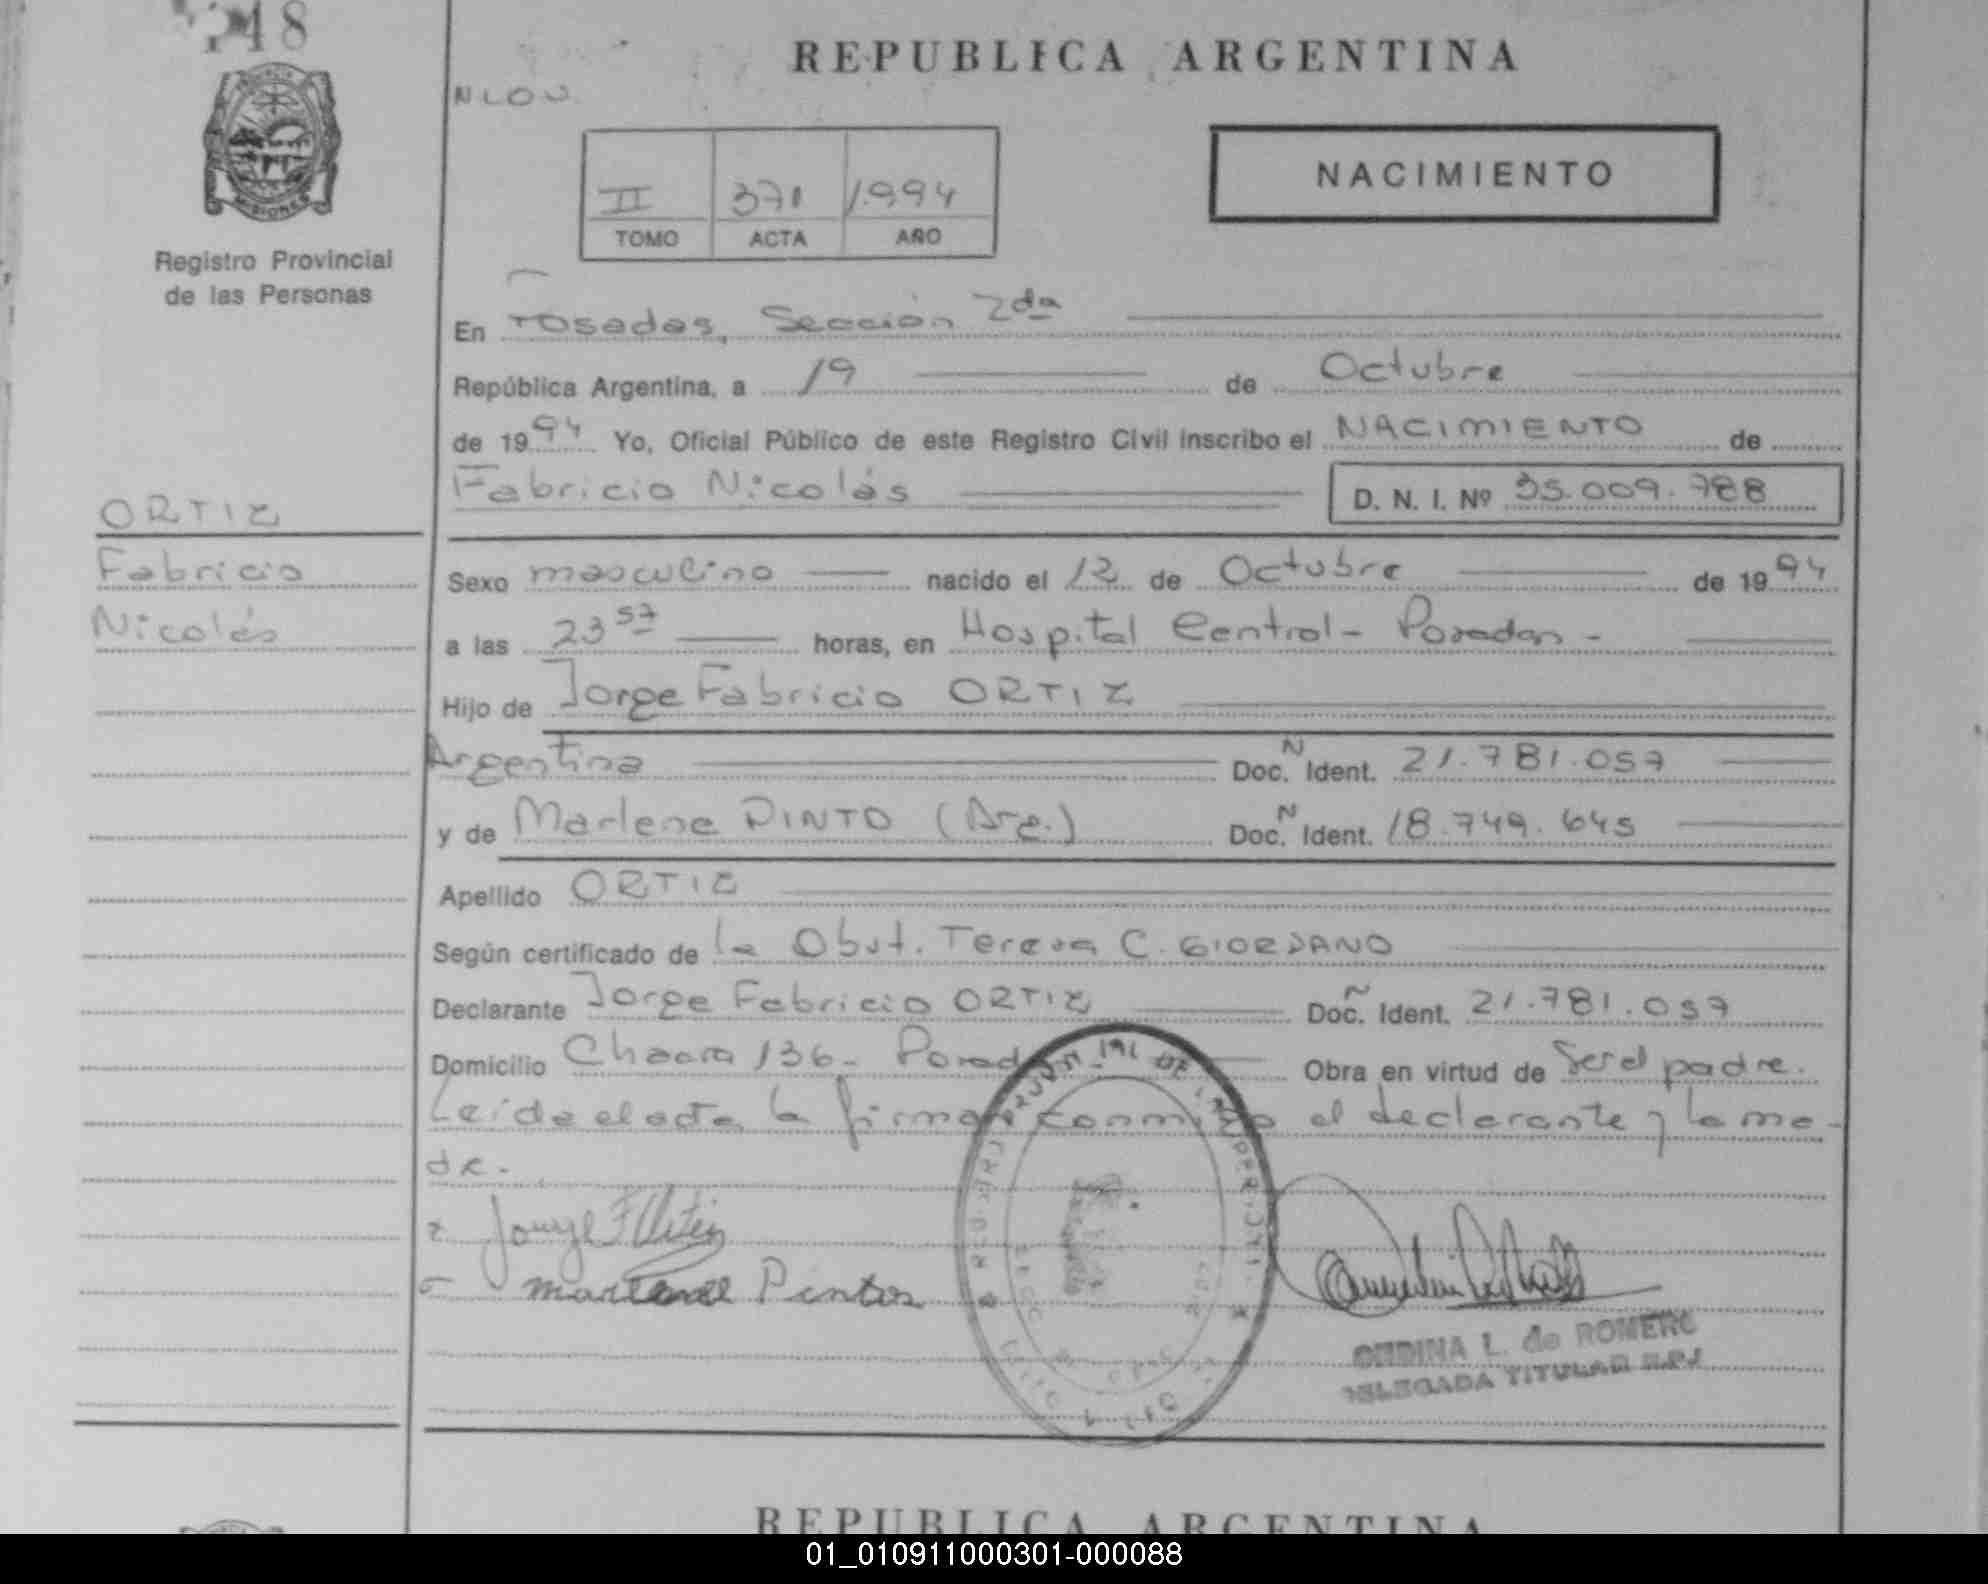 248
REPUBLICA ARGENTINA
NLOU.
II 371 1.994
TOMO ACTA AÑO
NACIMIENTO
MISIONES
Registro Provincial
de las Personas
En Posadas, Sección 2da
República Argentina, a 19 de Octubre
de 1994 Yo, Oficial Público de este Registro Civil inscribo el NACIMIENTO de
Fabricio Nicolás D. N. I. Nº 35.009.788
ORTIZ
Fabricio
Nicolás
Sexo masculino nacido el 12 de Octubre de 1994
a las 23 57 horas, en Hospital Central - Posadas -
Hijo de Jorge Fabricio ORTIZ
Argentina Doc. N Ident. 21.781.057
y de Marlene PINTO (Arg.) Doc. N Ident. 18.749.645
Apellido ORTIZ
Según certificado de la Obst. Teresa C. GIORDANO
Declarante Jorge Fabricio ORTIZ Doc. Ident. 21.781.057
Domicilio Chacra 136 - Posadas Obra en virtud de ser el padre.
Leída el acta la firman conmigo el declarante y la ma-
dre.
Jorge F Ortiz
Marlene Pintos
L. de ROMERO
DELEGADA TITULAR R.P.J
REPUBLICA ARGENTINA
01_010911000301-000088